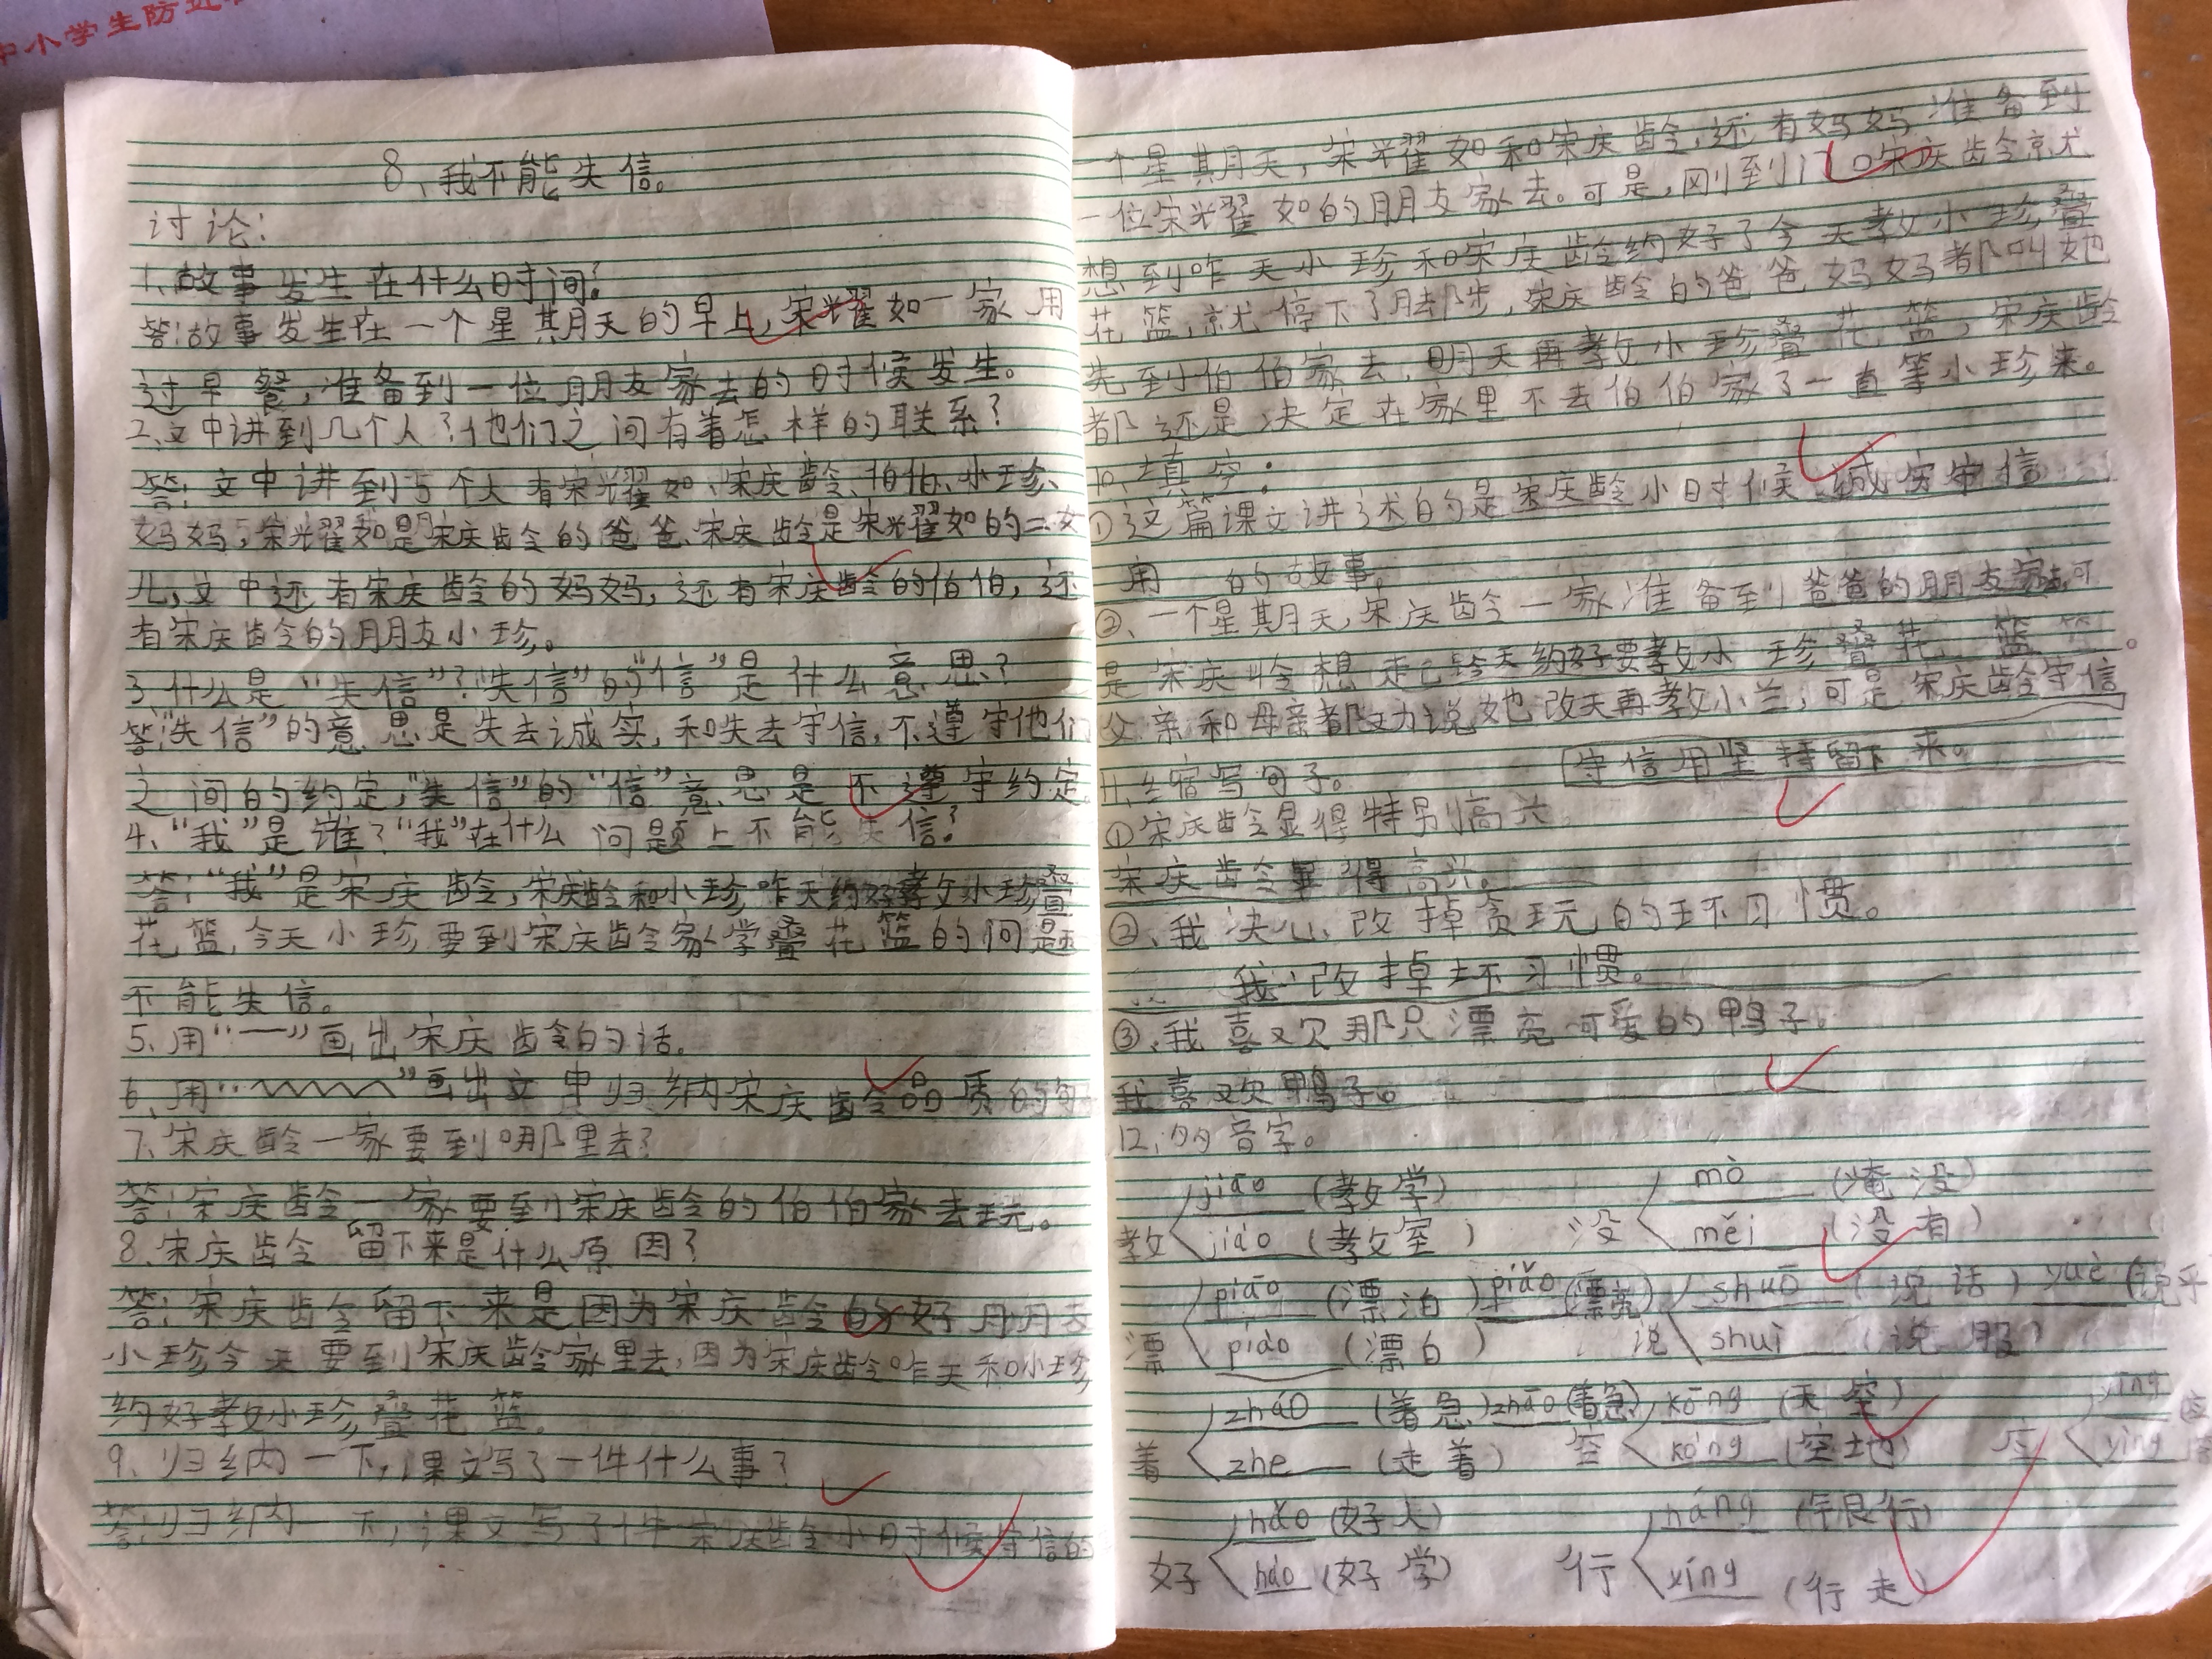 中小学生防近
8、我不能失信。
讨论：
1、故事发生在什么时间？
答：故事发生在一个星期天的早上，宋耀如一家用
过早餐，准备到一位朋友家去的时候发生。
2、文中讲到几个人？他们之间有着怎样的联系？
答：文中讲到5个人有宋耀如、宋庆龄、伯伯、小珍、
妈妈，宋耀如是宋庆龄的爸爸、宋庆龄是宋耀如的二女
儿，文中还有宋庆龄的妈妈，还有宋庆龄的伯伯，还
有宋庆龄的朋友小珍。
3、什么是“失信”？“失信”的“信”是什么意思？
答：“失信”的意思是失去诚实，和失去守信，不遵守他们
之间的约定，“失信”的“信”意思是不遵守约定。
4、“我”是谁？“我”在什么问题上不能失信？
答：“我”是宋庆龄，宋庆龄和小珍昨天约好教小珍叠
花篮，今天小珍要到宋庆龄家学叠花篮的问题
不能失信。
5、用“—”画出宋庆龄的话。
6、用“﹏﹏”画出文中归纳宋庆龄品质的句
7、宋庆龄一家要到哪里去？
答：宋庆龄一家要到宋庆龄的伯伯家去玩。
8、宋庆龄留下来是什么原因？
答：宋庆龄留下来是因为宋庆龄的好朋友
小珍今天要到宋庆龄家里去，因为宋庆龄昨天和小珍
约好教小珍叠花篮。
9、归纳一下，课文写了一件什么事？
答：归纳一下，课文写了件宋庆龄小时候守信的
一个星期天，宋耀如和宋庆龄，还有妈妈准备到
一位宋耀如的朋友家去。可是，刚到门口宋庆龄就
想到昨天小珍和宋庆龄约好了今天教小珍叠
花篮，就停下了脚步，宋庆龄的爸爸妈妈都叫她
先到伯伯家去，明天再教小珍叠花篮，宋庆龄
都还是决定在家里不去伯伯家了一直等小珍来。
10、填空：
①这篇课文讲述的是宋庆龄小时候诚实守信
用的故事。
②、一个星期天，宋庆龄一家准备到爸爸的朋友家去，可
是宋庆龄想起已约好要教小珍叠花篮。
父亲和母亲都劝说她改天再教小兰，可是宋庆龄守信
守信用坚持留下来。
11、缩写句子。
①宋庆龄显得特别高兴。
宋庆龄显得高兴。
②、我决心改掉贪玩的坏习惯。
我改掉坏习惯。
③、我喜欢那只漂亮可爱的鸭子。
我喜欢鸭子。
12、多音字。
教 jiāo（教学） jiào（教室） 没 mò（淹没） méi（没有）
漂 piāo（漂泊） piǎo（漂亮） piào（漂白） 说 shuō（说话） yuè shuì（说服）
着 zháo（着急） zhāo（着急） zhe（走着） 空 kōng（天空） kòng（空地） 应 yīng yìng
好 hǎo（好人） hào（好学） 行 háng（银行） xíng（行走）